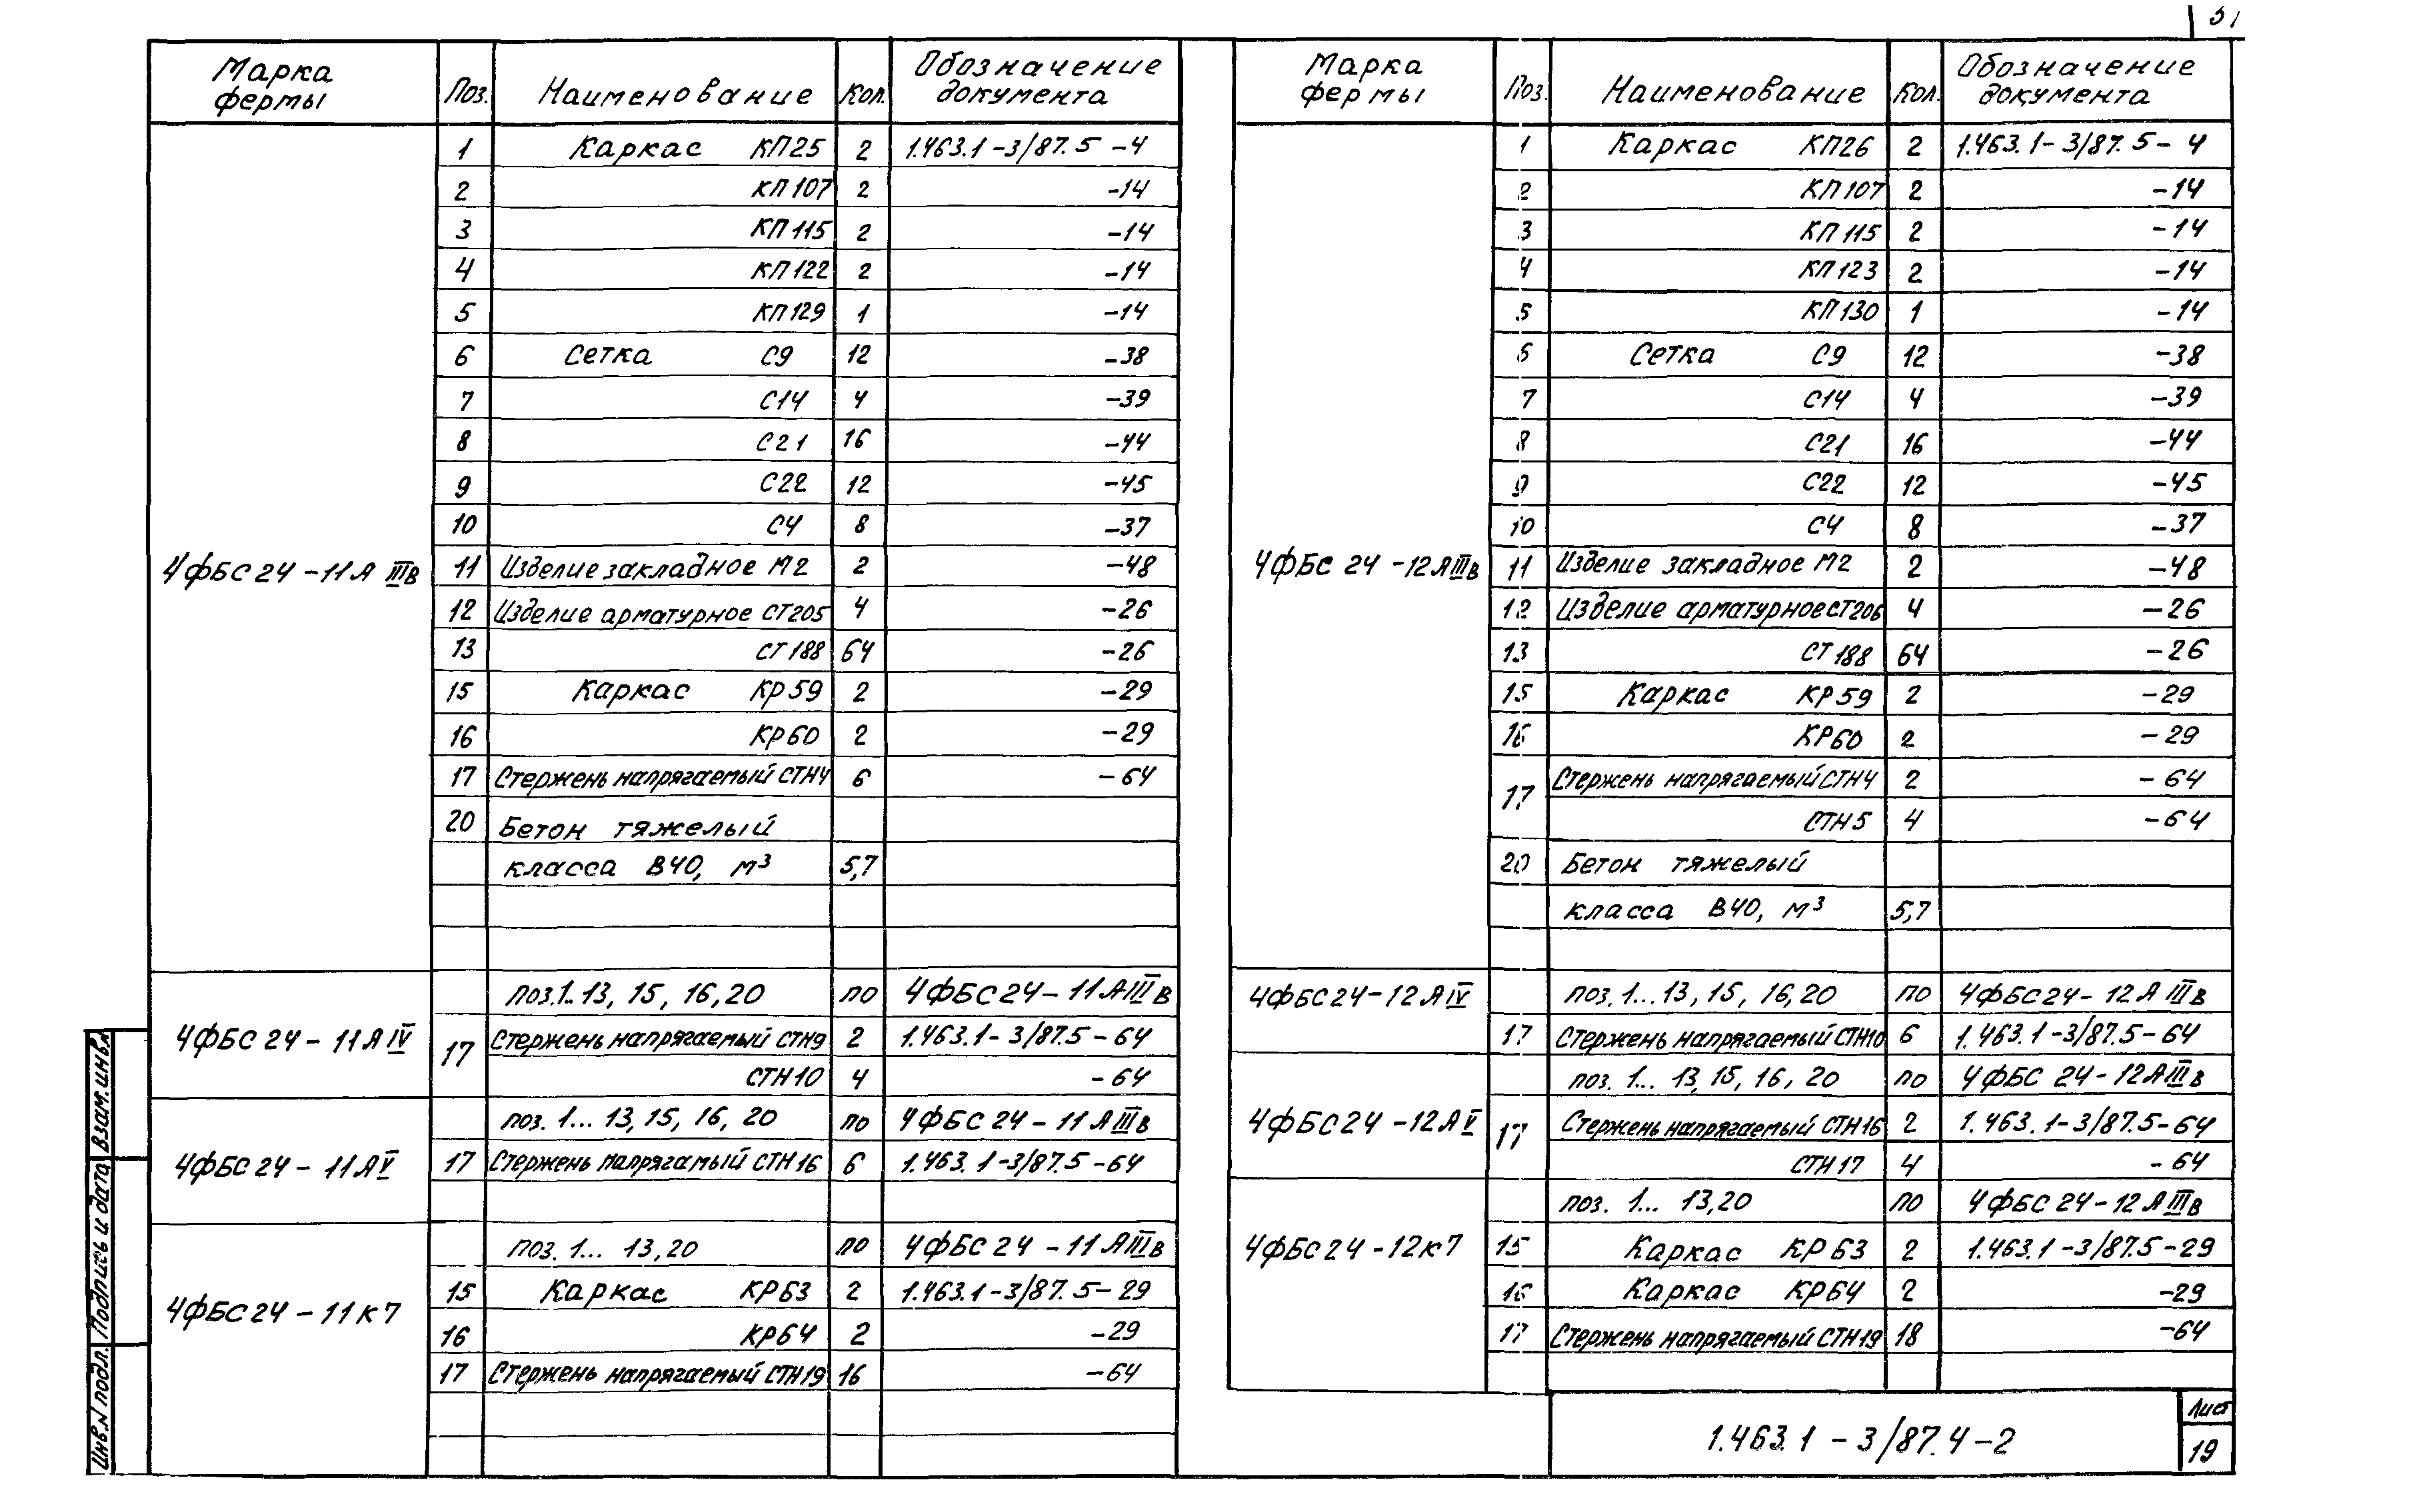 51
Марка фермы Поз. Наименование Кол. Обозначение документа
1 Каркас КП25 2 1.463.1-3/87.5-4
2 КП107 2 -14
3 КП115 2 -14
4 КП122 2 -14
5 КП129 1 -14
6 Сетка С9 12 -38
7 С14 4 -39
8 С21 16 -44
9 С22 12 -45
10 С4 8 -37
4ФБС24-11АIIIв 11 Изделие закладное М2 2 -48
12 Изделие арматурное СТ205 4 -26
13 СТ188 64 -26
15 Каркас КР59 2 -29
16 КР60 2 -29
17 Стержень напрягаемый СТН4 6 -64
20 Бетон тяжелый
класса В40, м³ 5,7
поз.1..13, 15, 16, 20 по 4ФБС24-11АIIIв
4ФБС24-11АIV 17 Стержень напрягаемый СТН9 2 1.463.1-3/87.5-64
СТН10 4 -64
поз. 1... 13, 15, 16, 20 по 4ФБС24-11АIIIв
4ФБС24-11АV 17 Стержень напрягамый СТН16 6 1.463.1-3/87.5-64
поз. 1... 13, 20 по 4ФБС24-11АIIIв
4ФБС24-11К7 15 Каркас КР63 2 1.463.1-3/87.5-29
16 КР64 2 -29
17 Стержень напрягаемый СТН19 16 -64
Марка фермы Поз. Наименование Кол. Обозначение документа
1 Каркас КП26 2 1.463.1-3/87.5-4
2 КП107 2 -14
3 КП115 2 -14
4 КП123 2 -14
5 КП130 1 -14
6 Сетка С9 12 -38
7 С14 4 -39
8 С21 16 -44
9 С22 12 -45
10 С4 8 -37
4ФБС24-12АIIIв 11 Изделие закладное М2 2 -48
12 Изделие арматурное СТ206 4 -26
13 СТ188 64 -26
15 Каркас КР59 2 -29
16 КР60 2 -29
17 Стержень напрягаемый СТН4 2 -64
СТН5 4 -64
20 Бетон тяжелый
класса В40, м³ 5,7
4ФБС24-12АIV поз. 1... 13, 15, 16, 20 по 4ФБС24-12АIIIв
17 Стержень напрягаемый СТН10 6 1.463.1-3/87.5-64
поз. 1... 13, 15, 16, 20 по 4ФБС24-12АIIIв
4ФБС24-12АV 17 Стержень напрягаемый СТН16 2 1.463.1-3/87.5-64
СТН17 4 -64
поз. 1... 13, 20 по 4ФБС24-12АIIIв
4ФБС24-12К7 15 Каркас КР63 2 1.463.1-3/87.5-29
16 Каркас КР64 2 -29
17 Стержень напрягаемый СТН19 18 -64
1.463.1-3/87.4-2
Лист
19
Инв.N подл. Подпись и дата Взам.инв.N